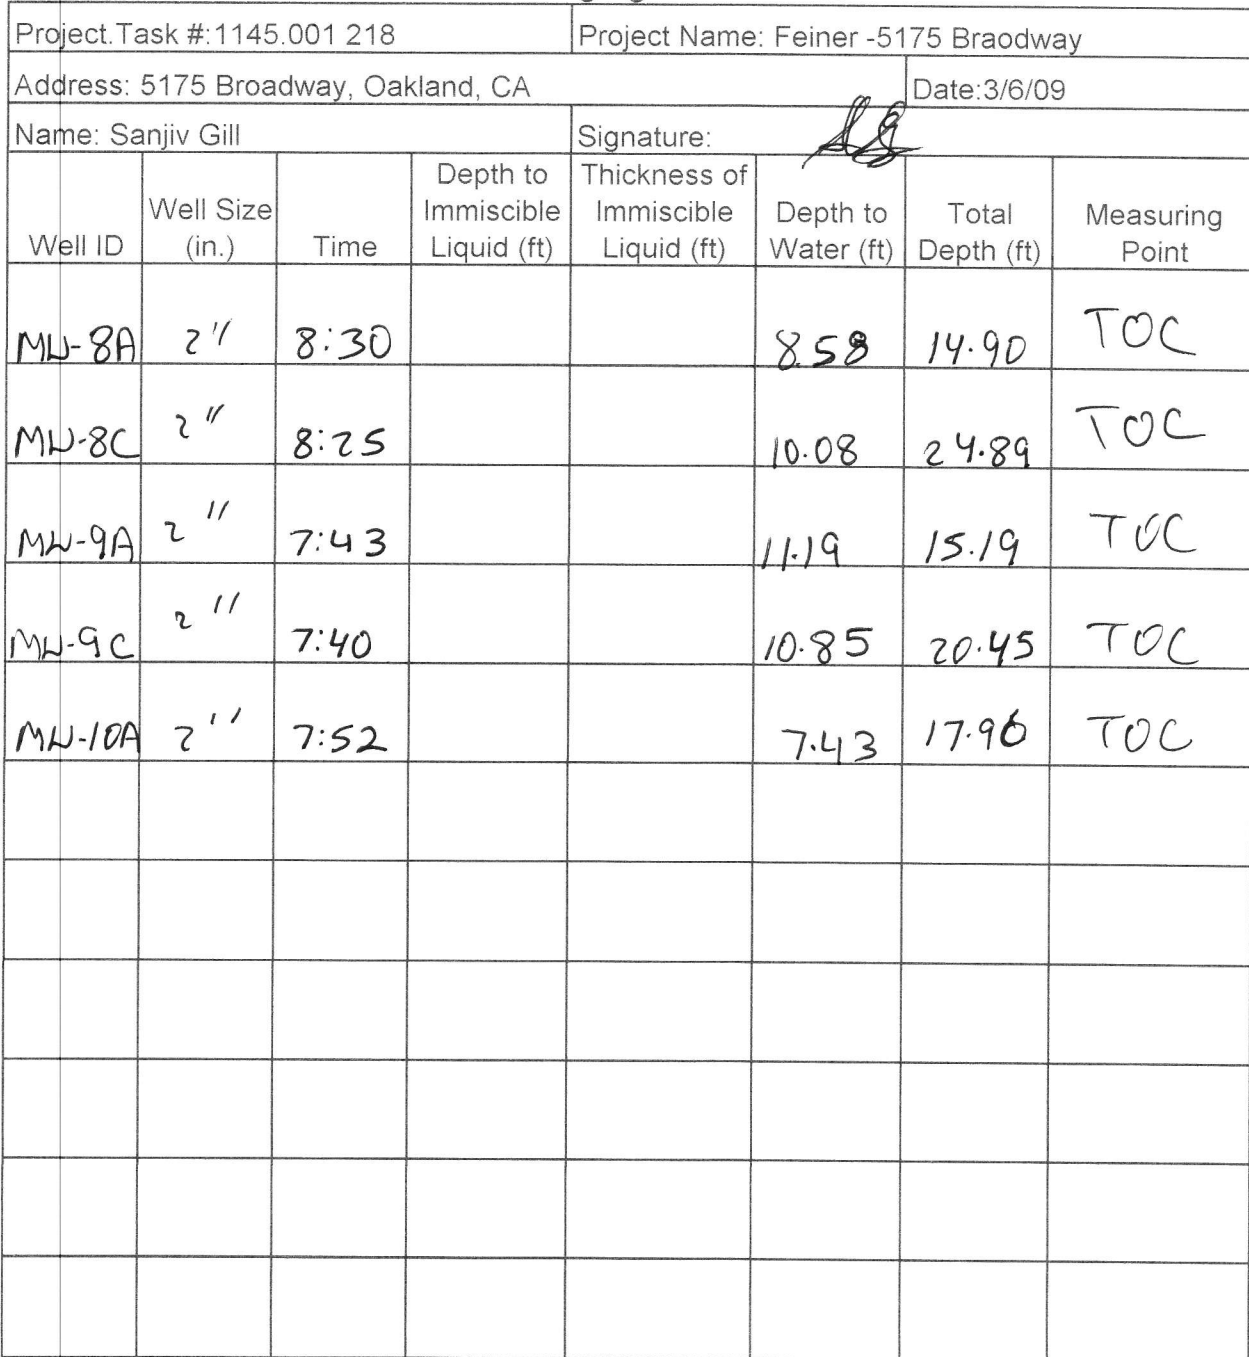 Project.Task #:1145.001 218 Project Name: Feiner -5175 Braodway
Address: 5175 Broadway, Oakland, CA Date:3/6/09
Name: Sanjiv Gill Signature:
Well ID Well Size (in.) Time Depth to Immiscible Liquid (ft) Thickness of Immiscible Liquid (ft) Depth to Water (ft) Total Depth (ft) Measuring Point
MW-8A 2" 8:30 8.58 14.90 TOC
MW-8C 2" 8:25 10.08 24.89 TOC
MW-9A 2" 7:43 11.19 15.19 TOC
MW-9C 2" 7:40 10.85 20.45 TOC
MW-10A 2" 7:52 7.43 17.96 TOC